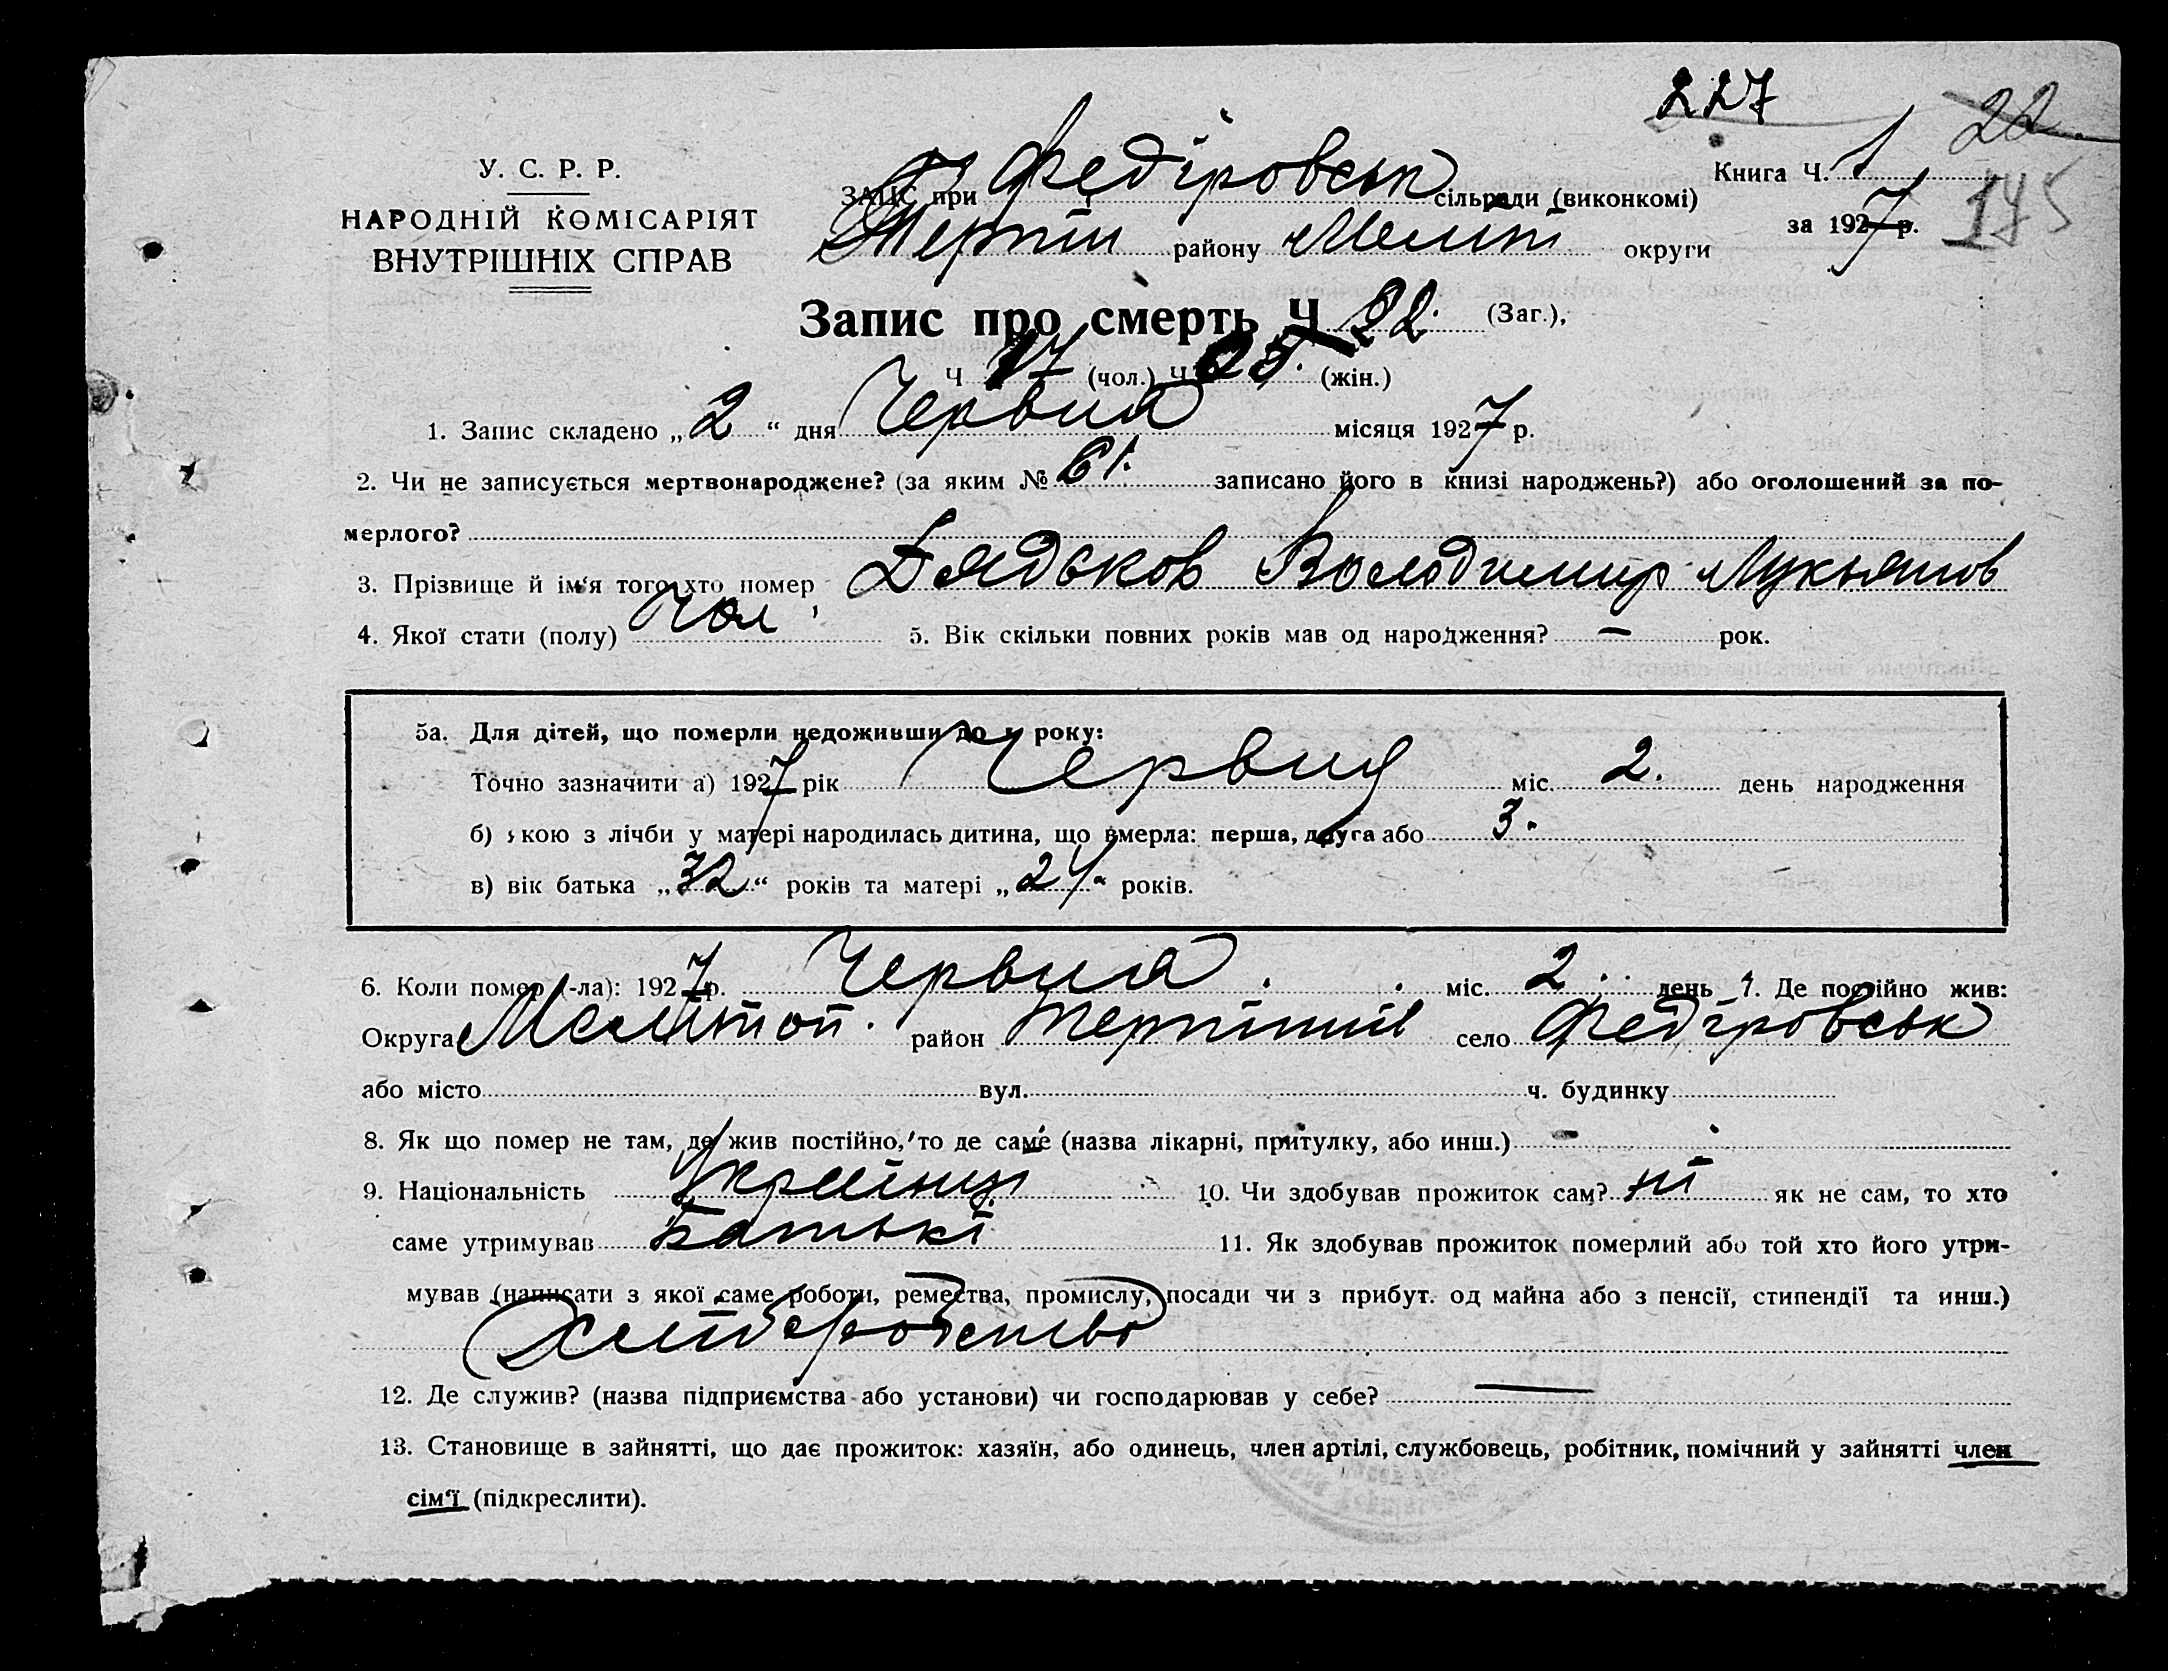 227
22.
175
У. С. Р. Р.
НАРОДНІЙ КОМІСАРІЯТ
ВНУТРІШНІХ СПРАВ
Книга Ч. 1
за 1927 р.
ЗАГС при Федіровськ сільради (виконкомі)
Терпін району Меліт округи
Запис про смерть Ч 22. (Заг.),
Ч 17 (чол.) Ч (жін.)
1. Запис складено „ 2 “ дня Червня місяця 1927 р.
2. Чи не записується мертвонароджене? (за яким № 61. записано його в книзі народжень?) або оголошений за по-
мерлого?
3. Прізвище й ім‘я того хто помер Дядьков Володимир Лукьянов
4. Якої стати (полу) Чол 5. Вік скільки повних років мав од народження? — рок.
5а. Для дітей, що померли недоживши до року:
Точно зазначити а) 1927 рік Червня міс. 2. день народження
б) якою з лічби у матері народилась дитина, що вмерла: перша, друга або 3.
в) вік батька „ 32 “ років та матері „ 24 “ років.
6. Коли помер (-ла): 1927 р. Червня міс. 2. день 7. Де постійно жив:
Округа Мелітоп. район Терпіний село Федіровськ
або місто вул. ч. будинку
8. Як що помер не там, де жив постійно, то де саме (назва лікарні, притулку, або инш.) —
9. Національність Українц 10. Чи здобував прожиток сам? ні як не сам, то хто
саме утримував Батькі 11. Як здобував прожиток померлий або той хто його утри-
мував (написати з якої саме роботи, ремества, промислу, посади чи з прибут. од майна або з пенсії, стипендії та инш.)
Хліборобство
12. Де служив? (назва підприємства або установи) чи господарював у себе? —
13. Становище в зайнятті, що дає прожиток: хазяїн, або одинець, член артілі, службовець, робітник, помічний у зайнятті член
сім‘ї (підкреслити).